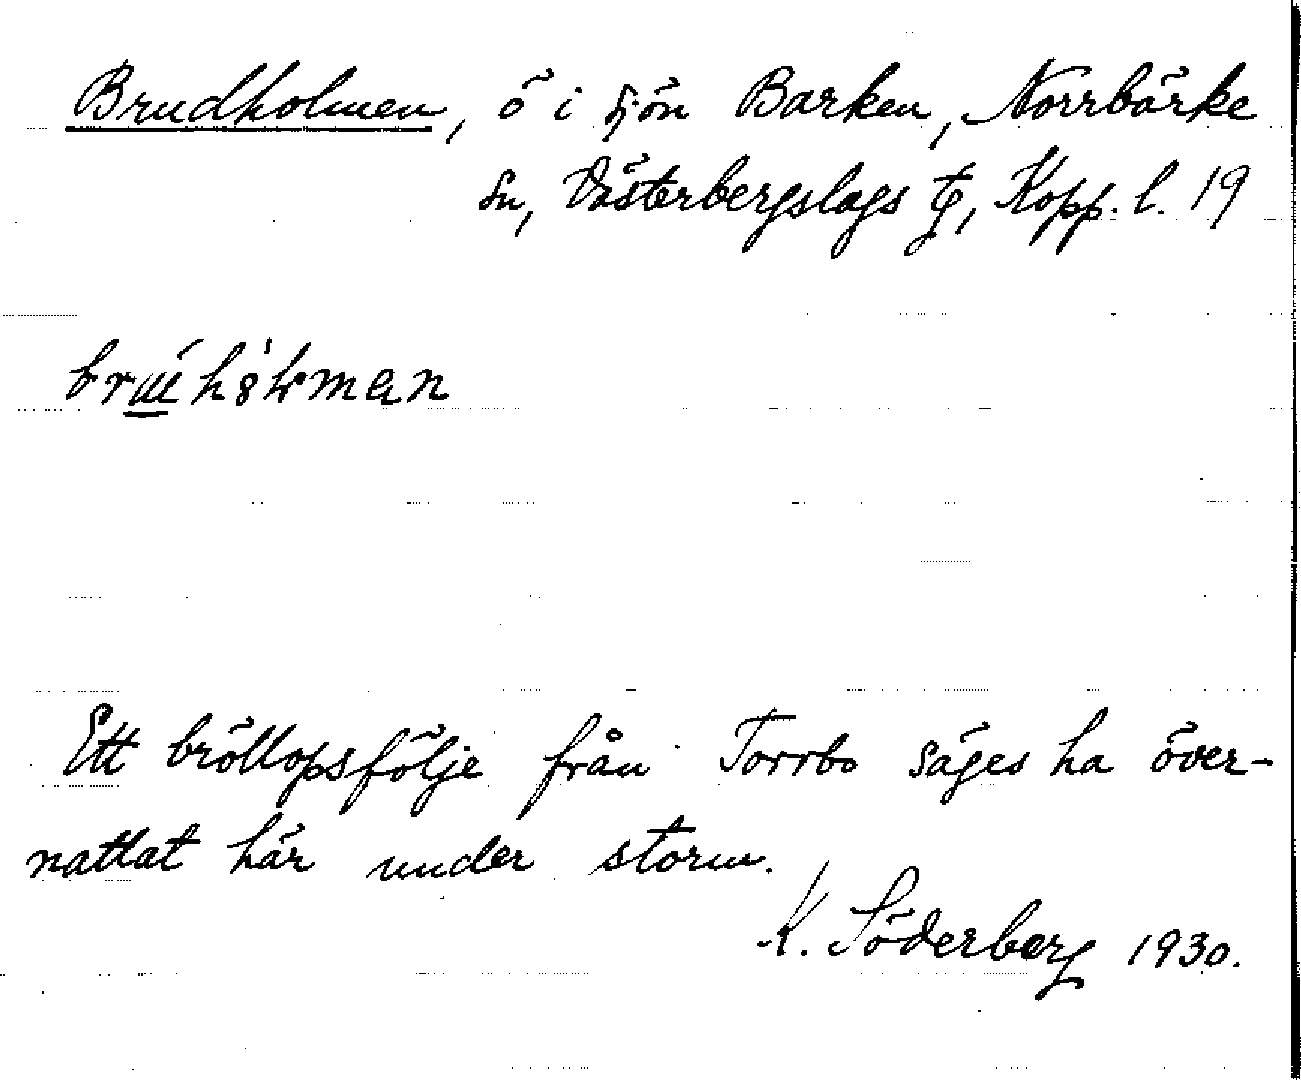 Brudholmen, ö i sjön Barken, Norrbärke
sn, Västerbergslags tg, Kopp. l. 19
Ett bröllopsfölje från Torrbo säges ha över-
nattat här under storm.
K. Söderberg 1930.